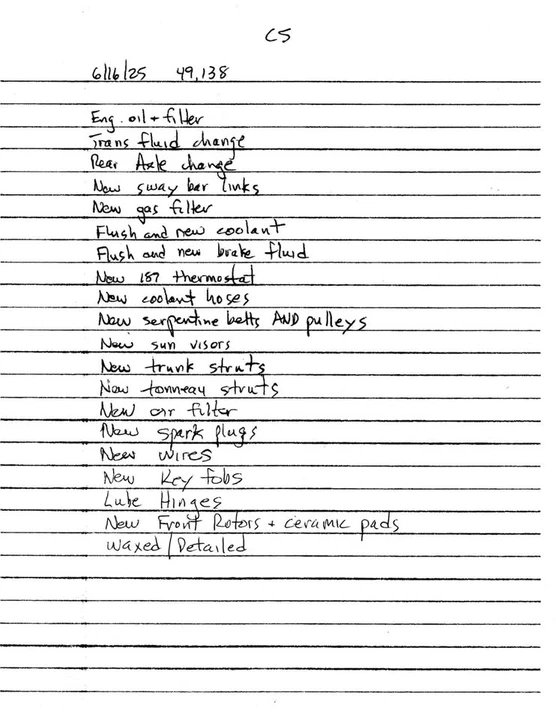 C5
6/16/25 49,138
Eng. oil + filter
Trans fluid change
Rear Axle change
New sway bar links
New gas filter
Flush and new coolant
Flush and new brake fluid
New 187 thermostat
New coolant hoses
New serpentine belts AND pulleys
New sun visors
New trunk struts
New tonneau struts
New air filter
New spark plugs
New wires
New Key fobs
Lube Hinges
New Front Rotors + ceramic pads
Waxed/Detailed